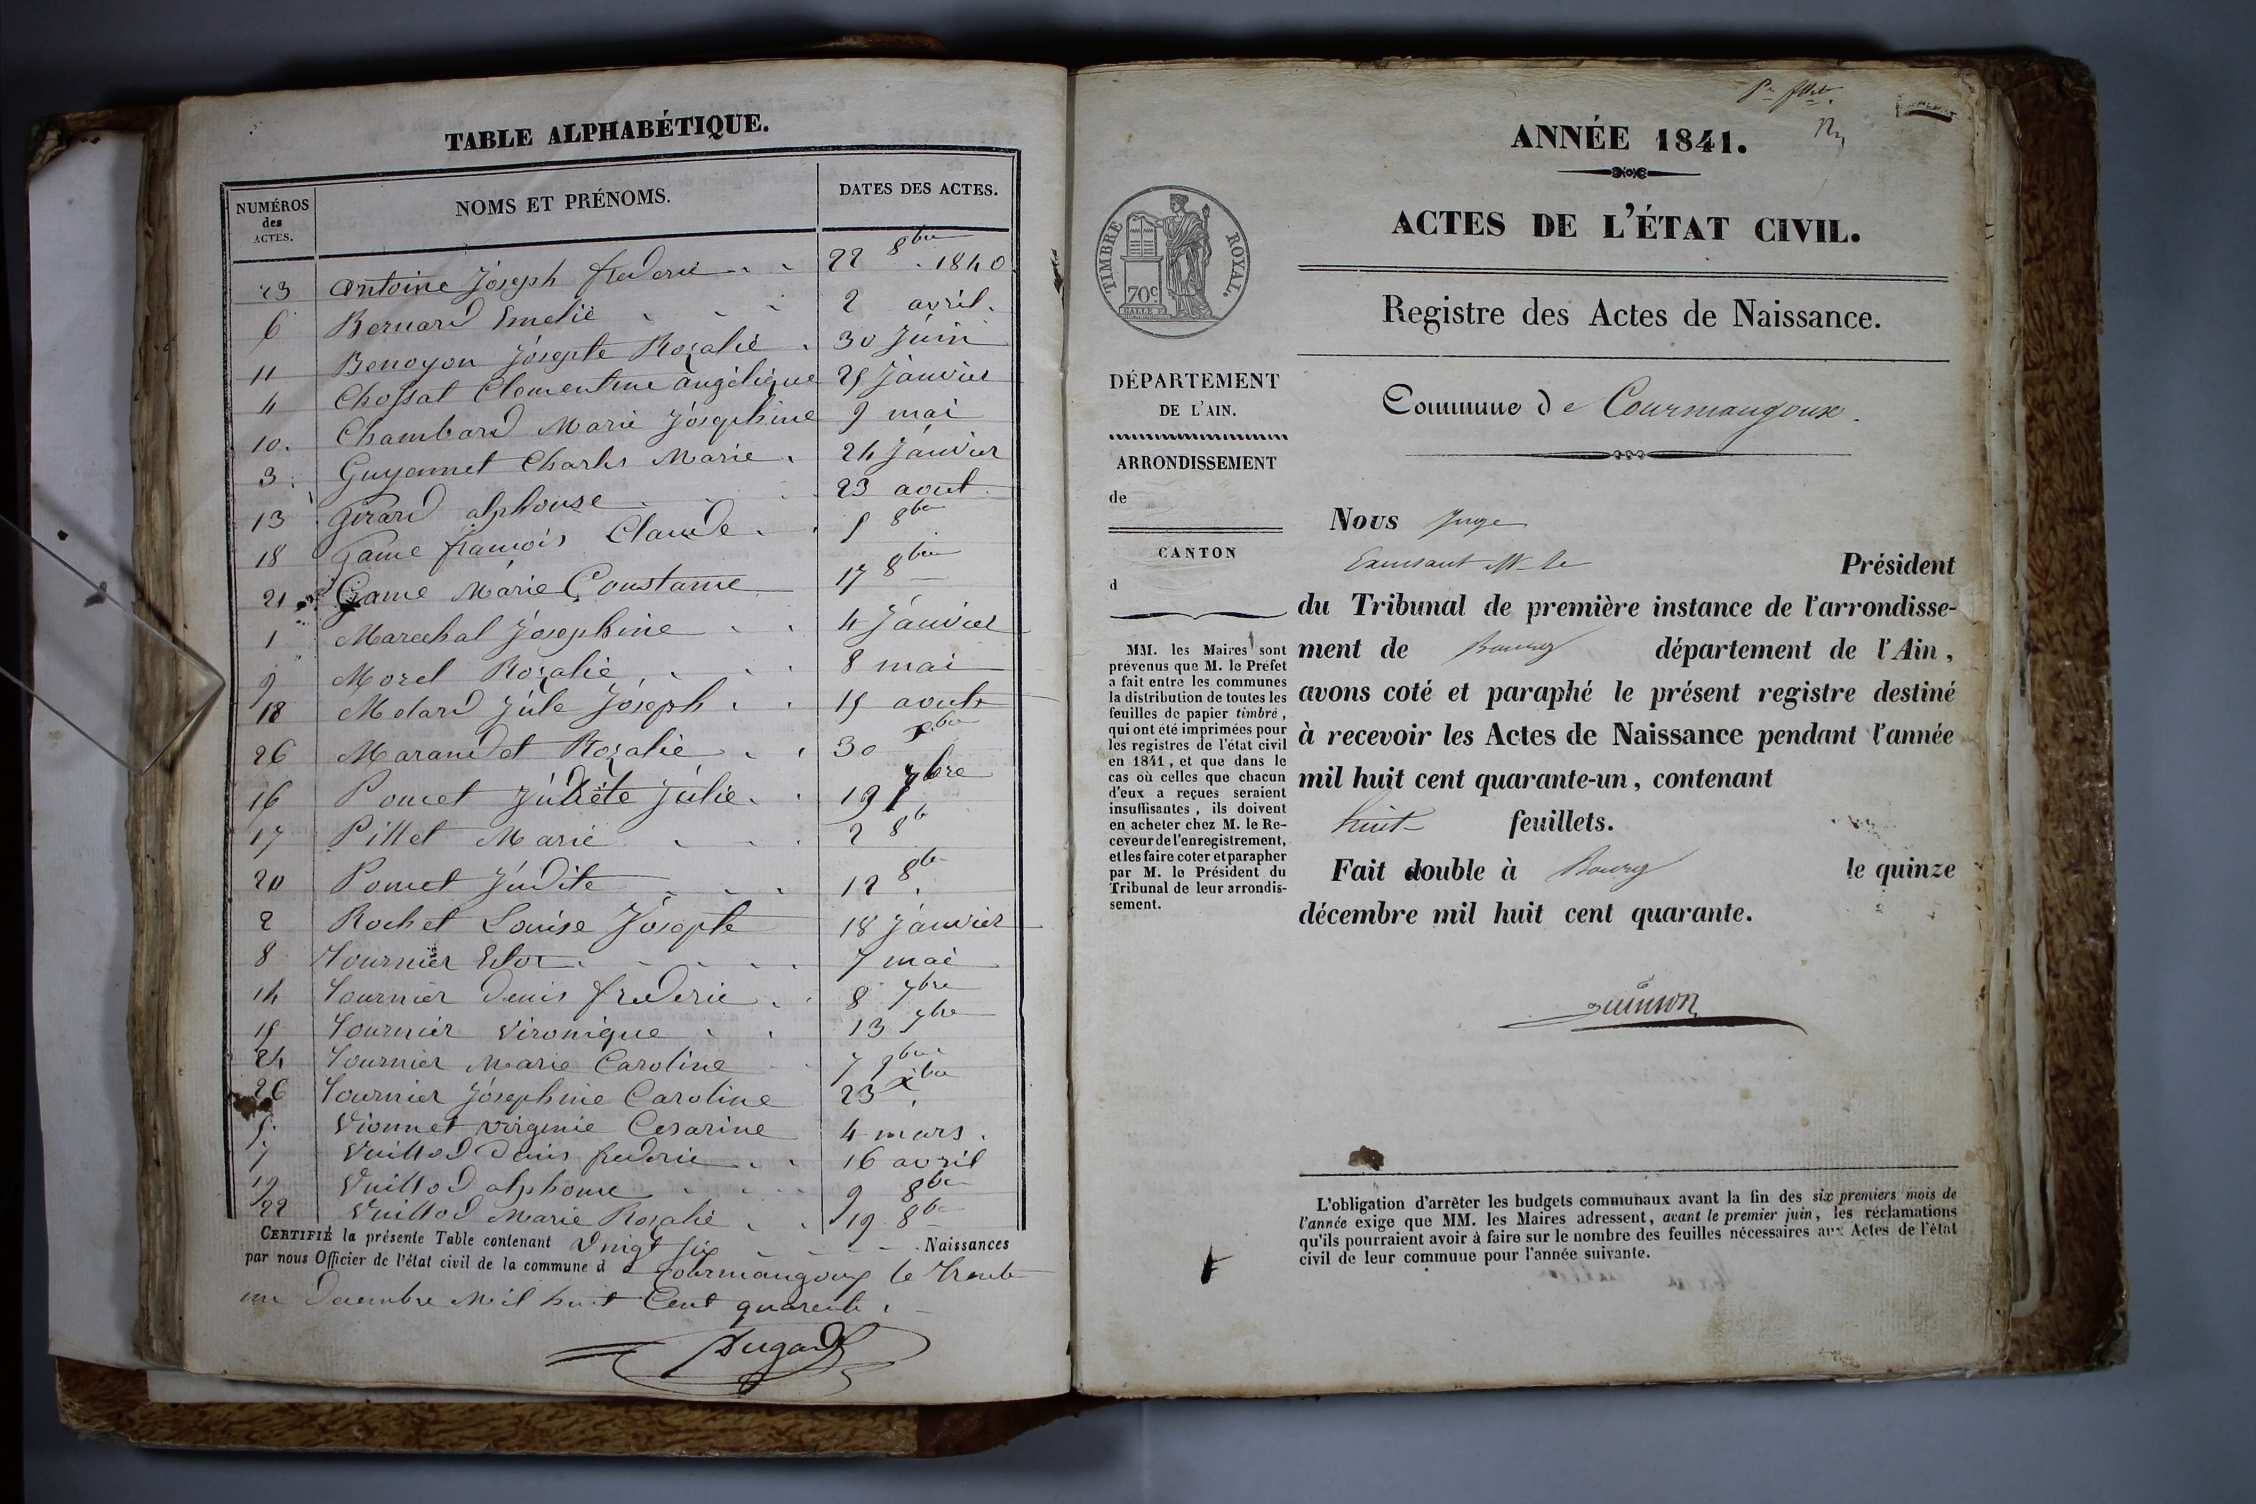 TABLE ALPHABÉTIQUE.
NUMÉROS des ACTES.
NOMS ET PRÉNOMS.
DATES DES ACTES.
23 Antoine Joseph frederic 22 8bre 1840
6 Bernard Emelie 2 avril.
11 Benoyon Josephte Rozalie 30 Juin
4 Chossat Clementine angélique 25 Janvier
10. Chambard Marie Joséphine 9 mai
3. Guyennet Charles Marie. 24 Janvier
13 Girard alphonse 23 aout
18 Game francois Claude 5 8bre
21 Game Marie Constance 17 8bre
1 Marechal Josephine 4 Janvier
9 Morel Rozalie 8 mai
12 Medard Jule Joseph 15 aout
26 Marandet Rozalie 30 xbre
16 Poncet Juliete Julie 19 7bre
17 Pillet Marie 2 8b
20 Poncet Judite 12 8b
2 Rochet Louise Josephte 18 Janvier
8 Tournier 7 mai
14 Tournier Denis frederic 8 7bre
15 Tournier Vironique 13 7bre
24 Tournier Marie Caroline 7 9bre
26 Tournier Joséphine Caroline 23 xbre
5. Vionnet virginie Cesarine 4 mars.
7 Vuillod Denis frederic 16 avril
19 Vuillod alphonse 9 8bre
22 Vuillod Marie Rozalie 19 8b
CERTIFIÉ la présente Table contenant Vingt six Naissances
par nous Officier de l'état civil de la commune d e Courmangoux le trente
un decembre Mil huit Cent quarente.
P. fllet.
ANNÉE 1841.
ACTES DE L'ÉTAT CIVIL.
TIMBRE ROYAL.
70c
Registre des Actes de Naissance.
DÉPARTEMENT
DE L'AIN.
ARRONDISSEMENT
de
CANTON
d
MM. les Maires sont
prévenus que M. le Préfet
a fait entre les communes
la distribution de toutes les
feuilles de papier timbré,
qui ont été imprimées pour
les registres de l'état civil
en 1841, et que dans le
cas où celles que chacun
d'eux a reçues seraient
insuffisantes, ils doivent
en acheter chez M. le Re-
ceveur de l'enregistrement,
et les faire coter et parapher
par M. le Président du
Tribunal de leur arrondis-
sement.
Commune d e Courmangoux.
Nous Juge
Exerçant M. le Président
du Tribunal de première instance de l'arrondisse-
ment de Bourg département de l'Ain,
avons coté et paraphé le présent registre destiné
à recevoir les Actes de Naissance pendant l'année
mil huit cent quarante-un, contenant
huit feuillets.
Fait double à Bourg le quinze
décembre mil huit cent quarante.
L'obligation d'arrêter les budgets communaux avant la fin des six premiers mois de
l'année exige que MM. les Maires adressent, avant le premier juin, les réclamations
qu'ils pourraient avoir à faire sur le nombre des feuilles nécessaires aux Actes de l'état
civil de leur commune pour l'année suivante.